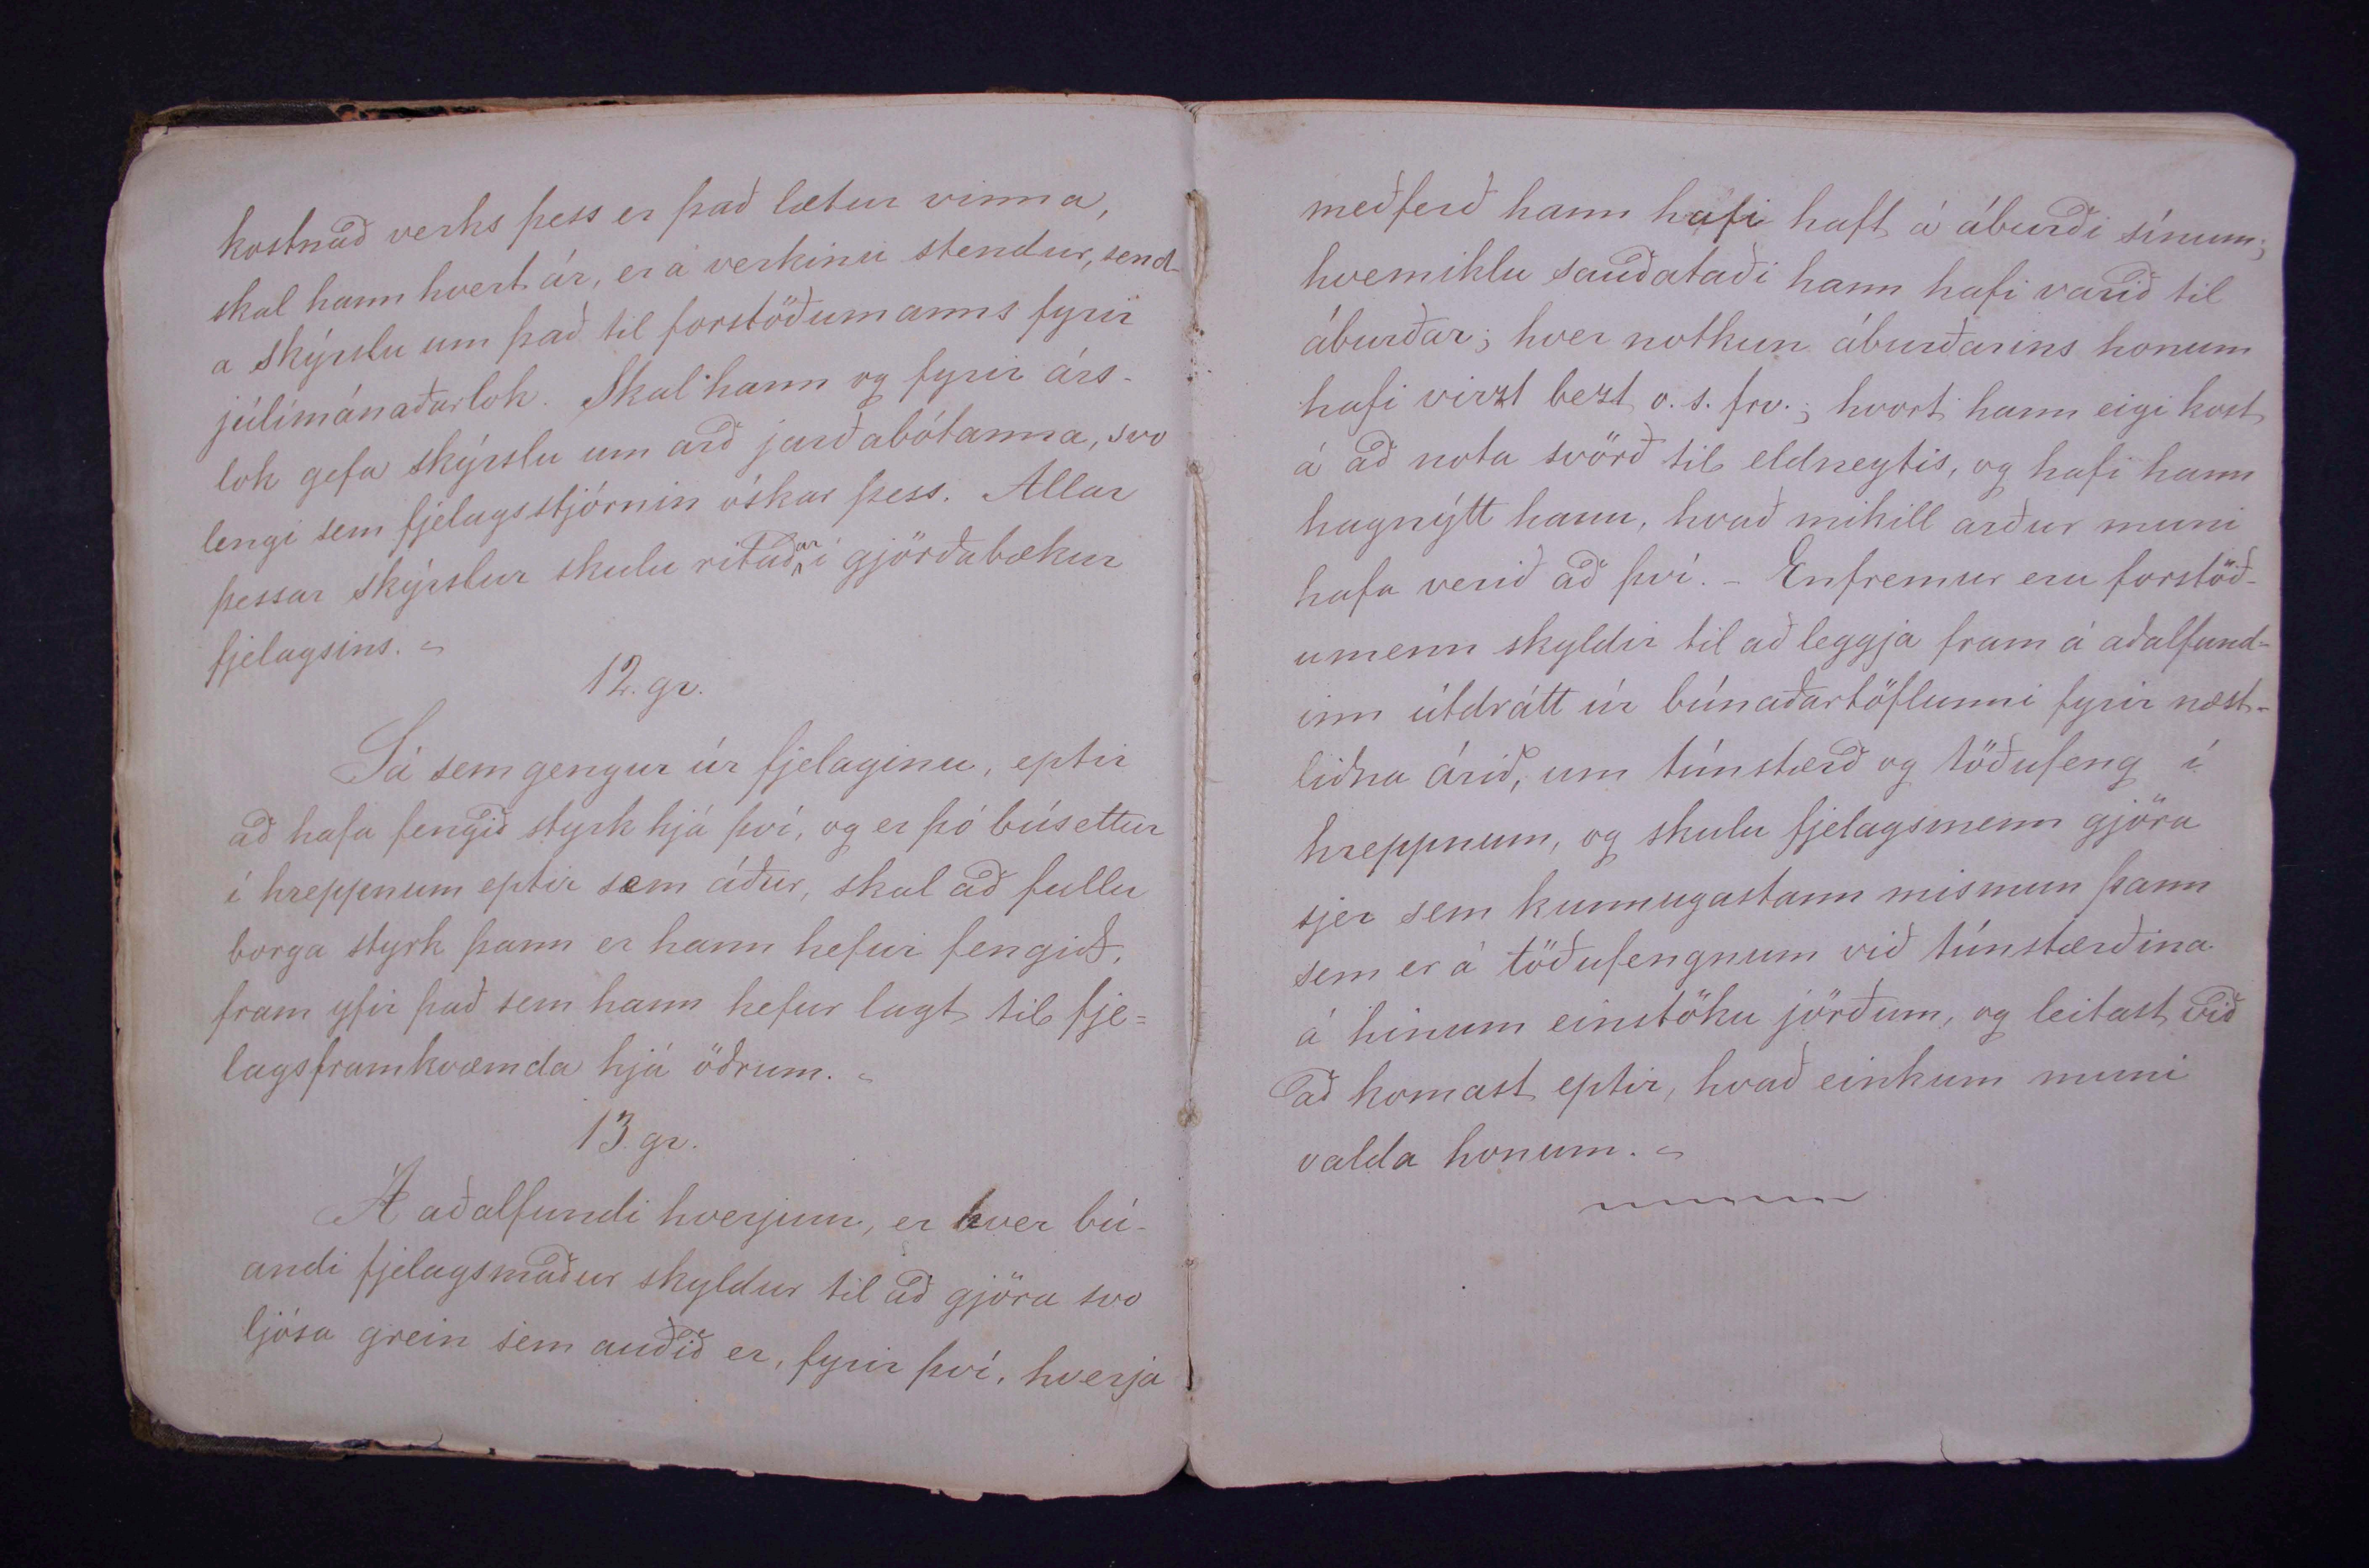 kostnað verks þess er það lætur vinna,
skal hann hvert ár, er á verkinu stendur, send-
a skýrslu um það til forstöðumanns fyrir
júlímánaðarlok. Skal hann og fyrir árs-
lok gefa skýrslu um arð jarðabótanna, svo
lengi sem fjelagsstjórnin óskar þess. Allar
þessar skýrslur skulu ritaðar í gjörðabækur
fjelagsins. -
12. gr.
Sá sem gengur úr fjelaginu, eptir
að hafa fengið styrk hjá því, og er þó búsettur
í hreppnum eptir sem áður, skal að fullu
borga styrk þann er hann hefur fengið,
fram yfir það sem hann hefur lagt til fje=
lagsframkvæmda hjá öðrum. -
13. gr.
Á aðalfundi hverjum, er hver bú-
andi fjelagsmaður skyldur til að gjöra svo
ljósa grein sem auðið er, fyrir því, hverja
meðferð hann hafi haft á áburði sínum;
hvemiklu sauðataði hann hafi varið til
áburðar; hver notkun áburðarins honum
hafi virzt bezt o. s. frv.; hvort hann eigi kost
á að nota svörð til eldneytis, og hafi hann
hagnýtt hann, hvað mikill arður muni
hafa verið að því. - Enfremur eru forstöð-
umenn skyldir til að leggja fram á aðalfund-
inn útdrátt úr búnaðartöflunni fyrir næst-
liðna árið, um túnstærð og töðufeng í
hreppnum, og skulu fjelagsmenn gjöra
sjer sem kunnugastann mismun þann
sem er á töðufengnum við túnstærðina
á hinum einstöku jörðum, og leitast við
að komast eptir, hvað einkum muni
valda honum. -